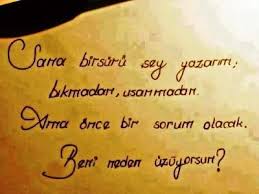 Sana birsürü şey yazarım;
bıkmadan, usanmadan.
Ama önce bir sorum olacak.
Beni neden üzüyorsun?